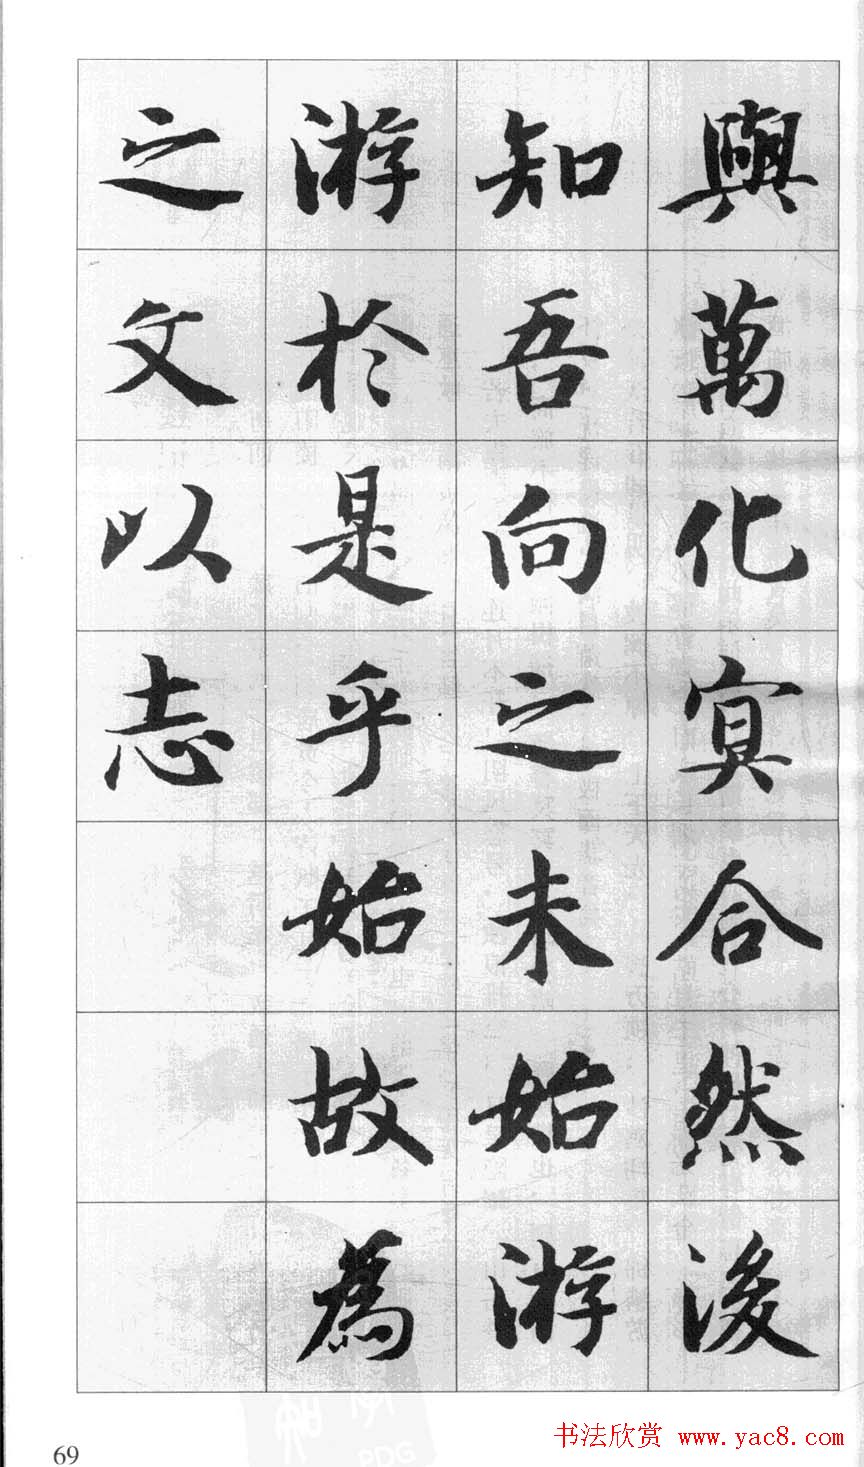 與萬化寅合然後
知吾向之未始游
游於是乎始故為
之文以志
69
书法欣赏 www.yac8.com